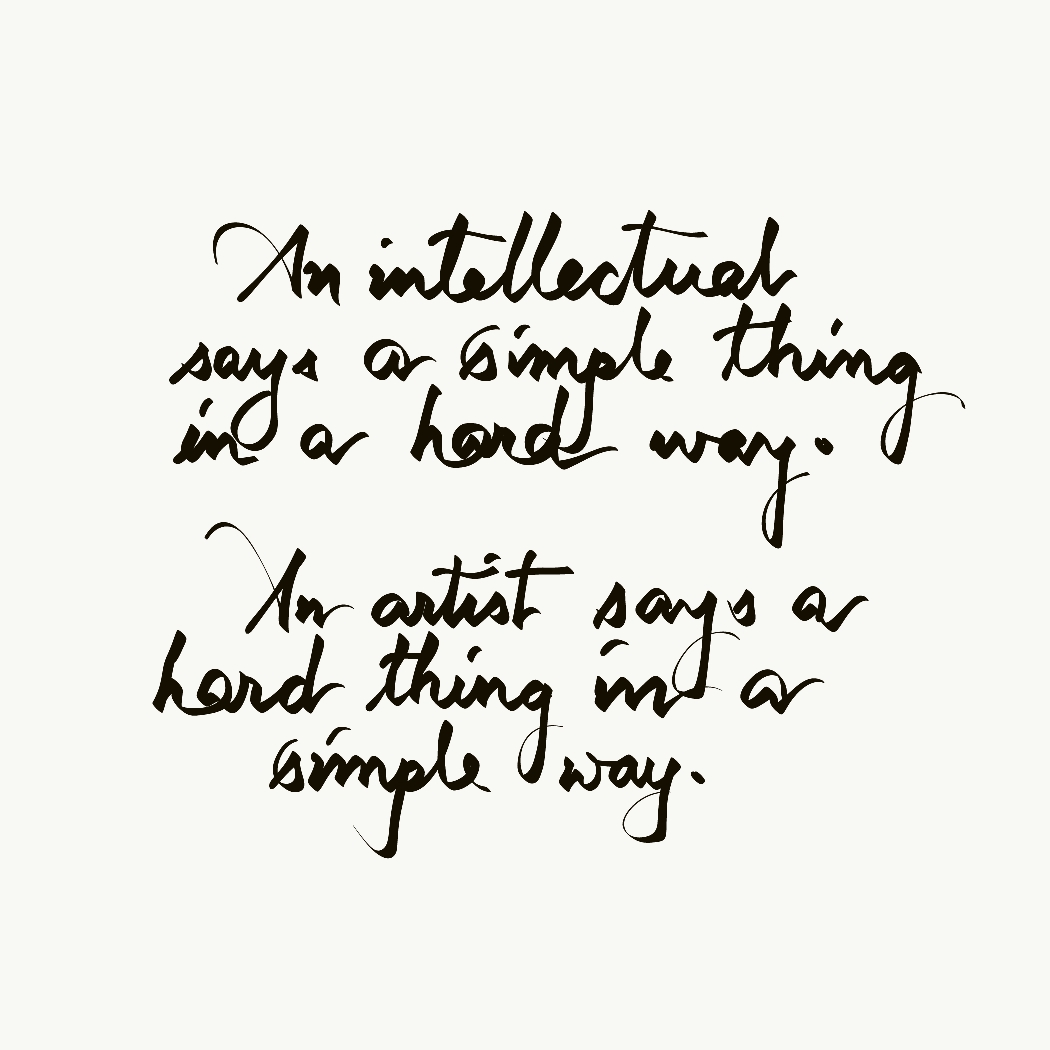 An intellectual
says a simple thing
in a hard way.
An artist says a
hard thing in a
simple way.